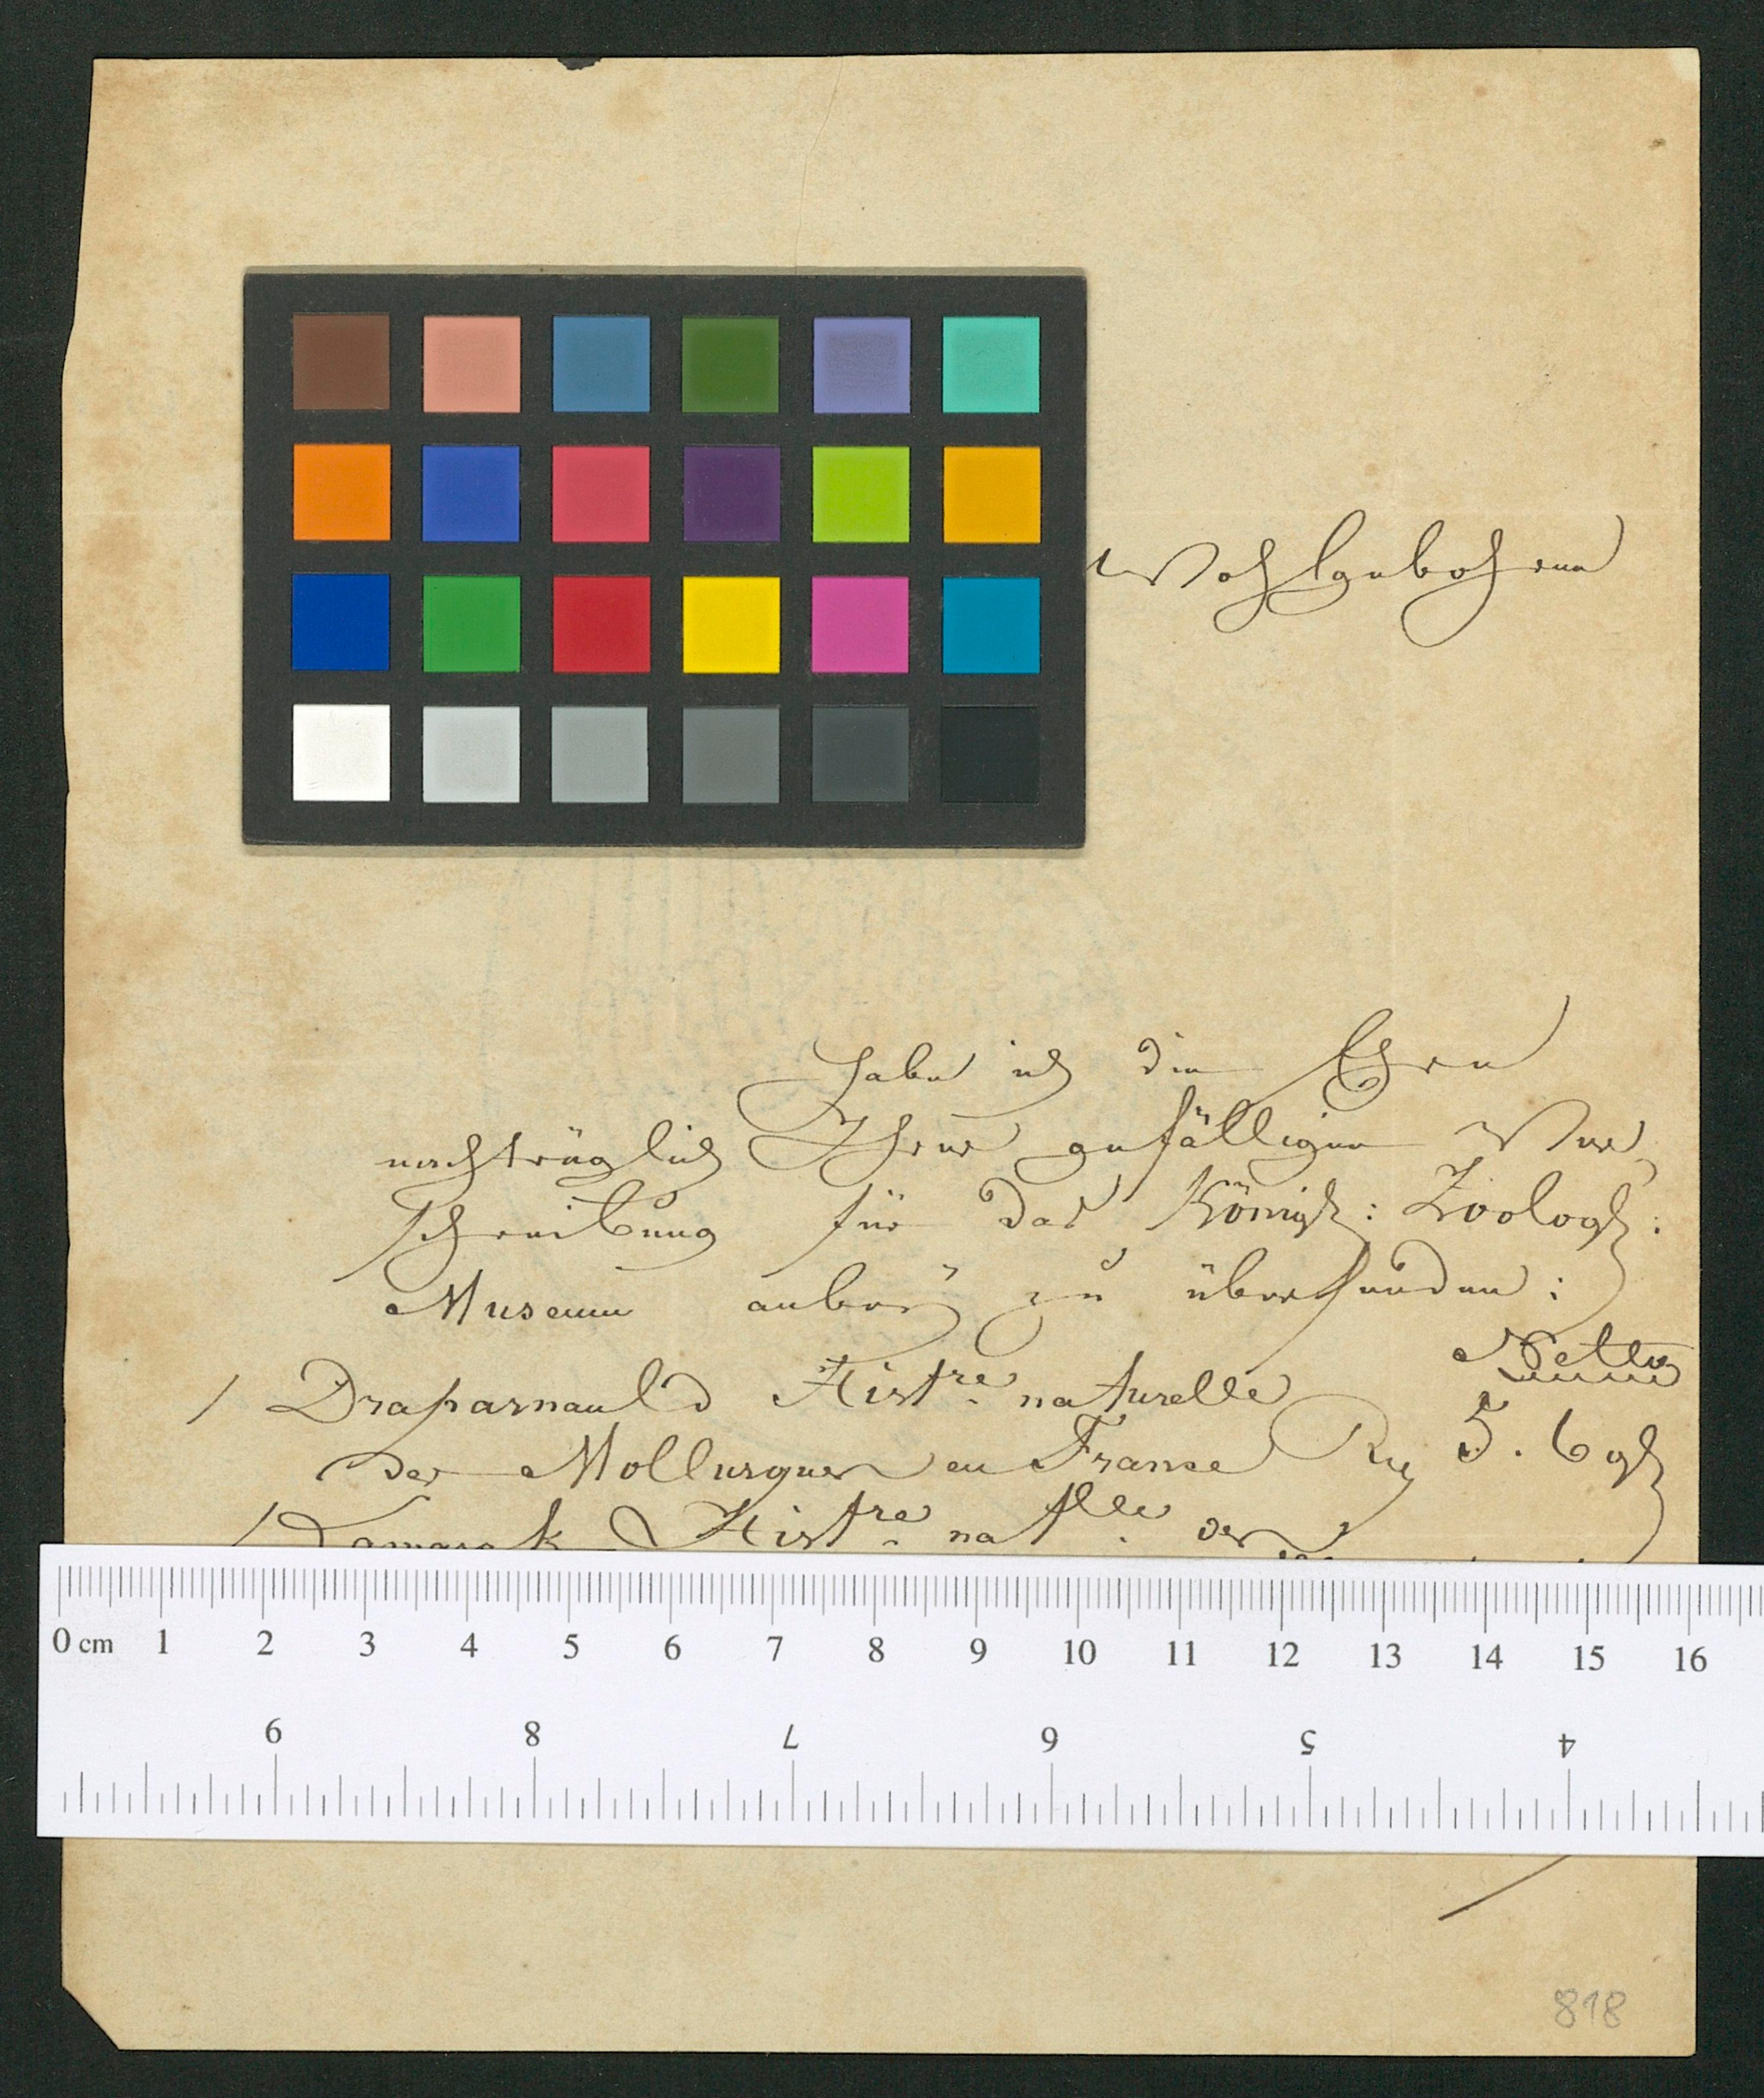 Wohlgebohren
Habe ich die Ehre
nachträglich Ihrer gefälligen Ver
schreibung für das Königl: Zoolog:
Museum anbey zu übersenden:
Netto
1 Draparnauld Histre. naturelle
des Mollusques en France 5. 6 g
1 Lamarck Histre. natlle. des
0 cm 1 2 3 4 5 6 7 8 9 10 11 12 13 14 15 16
9 8 7 6 5 4
818